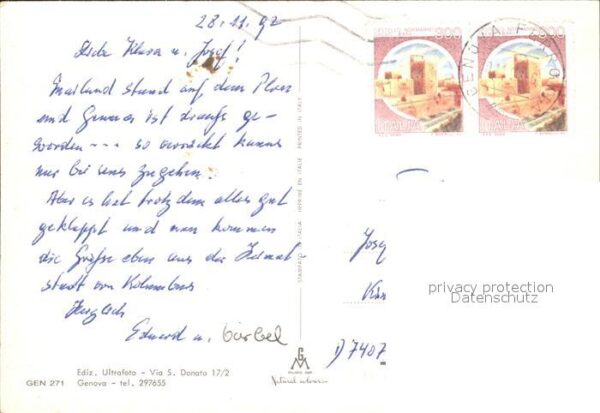 28.11.92
Liebe Klara u. Josef!
Mailand stand auf dem Plan
und Genua ist draus ge-
worden --- so verrückt kanns
nur bei uns zugehen.
Aber es hat trotzdem alles gut
geklappt und nun kommen
die Grüße eben aus der Heimat-
stadt von Kolumbus
Herzlich
Eduard u. bärbel
Ediz. Ultrafoto - Via S. Donato 17/2
GEN 271 Genova - tel. 297655
STAMPATO IN ITALIA IMPRIMÉ EN ITALIE PRINTED IN ITALY
GM
Natural colour
800
800
ITALIA
ITALIA
GENOVA
Jose
D 7407
privacy protection
Datenschutz